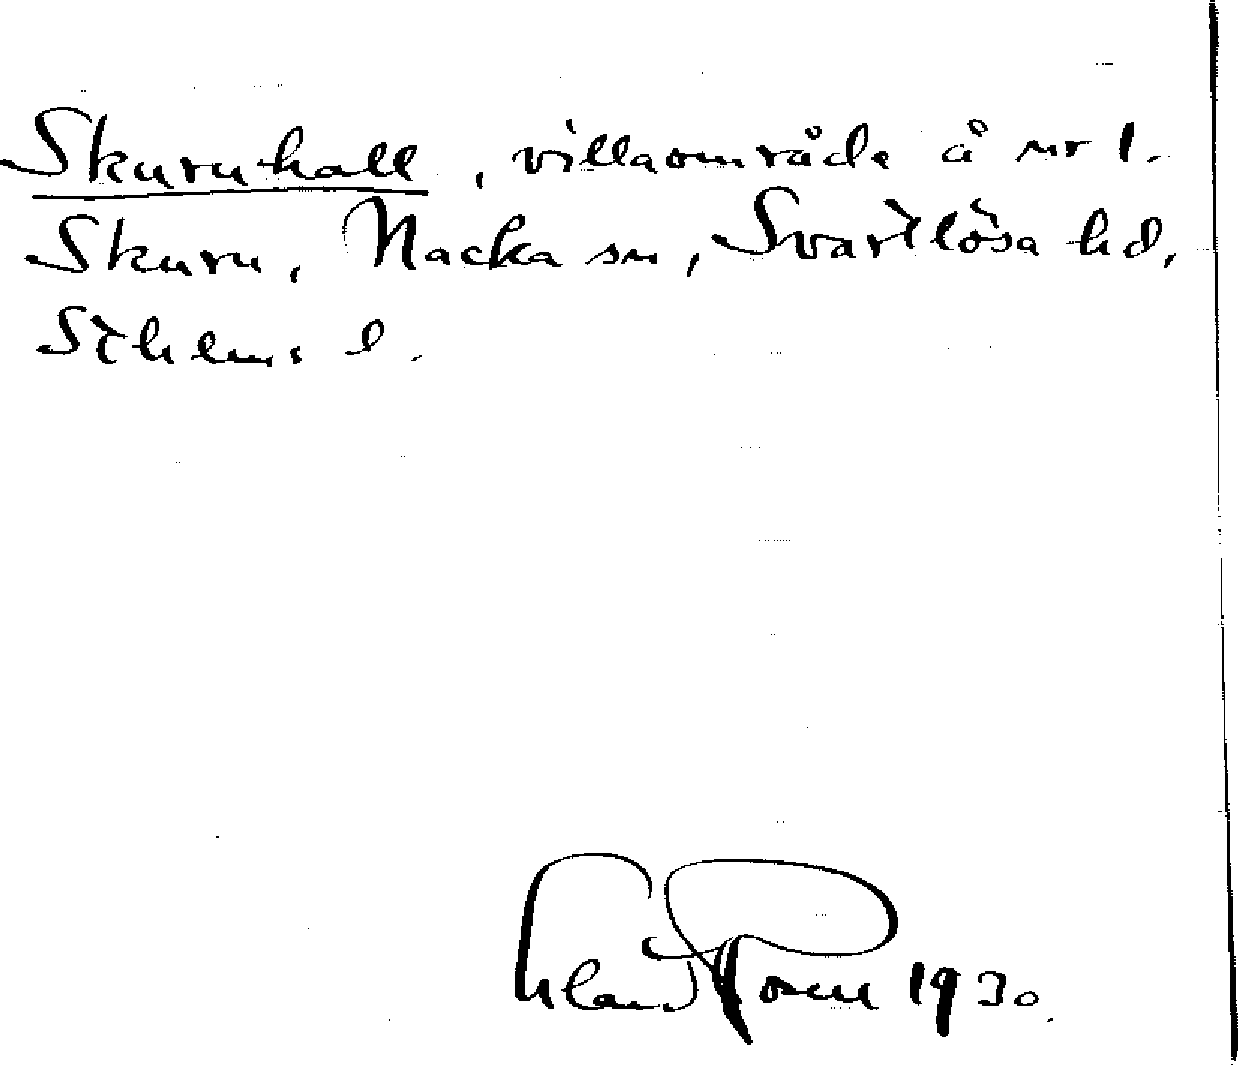 Skuruhall, villaområde å nr 1.
Skuru, Nacka sn, Svartlösa hd,
Sthlms l.
1930.